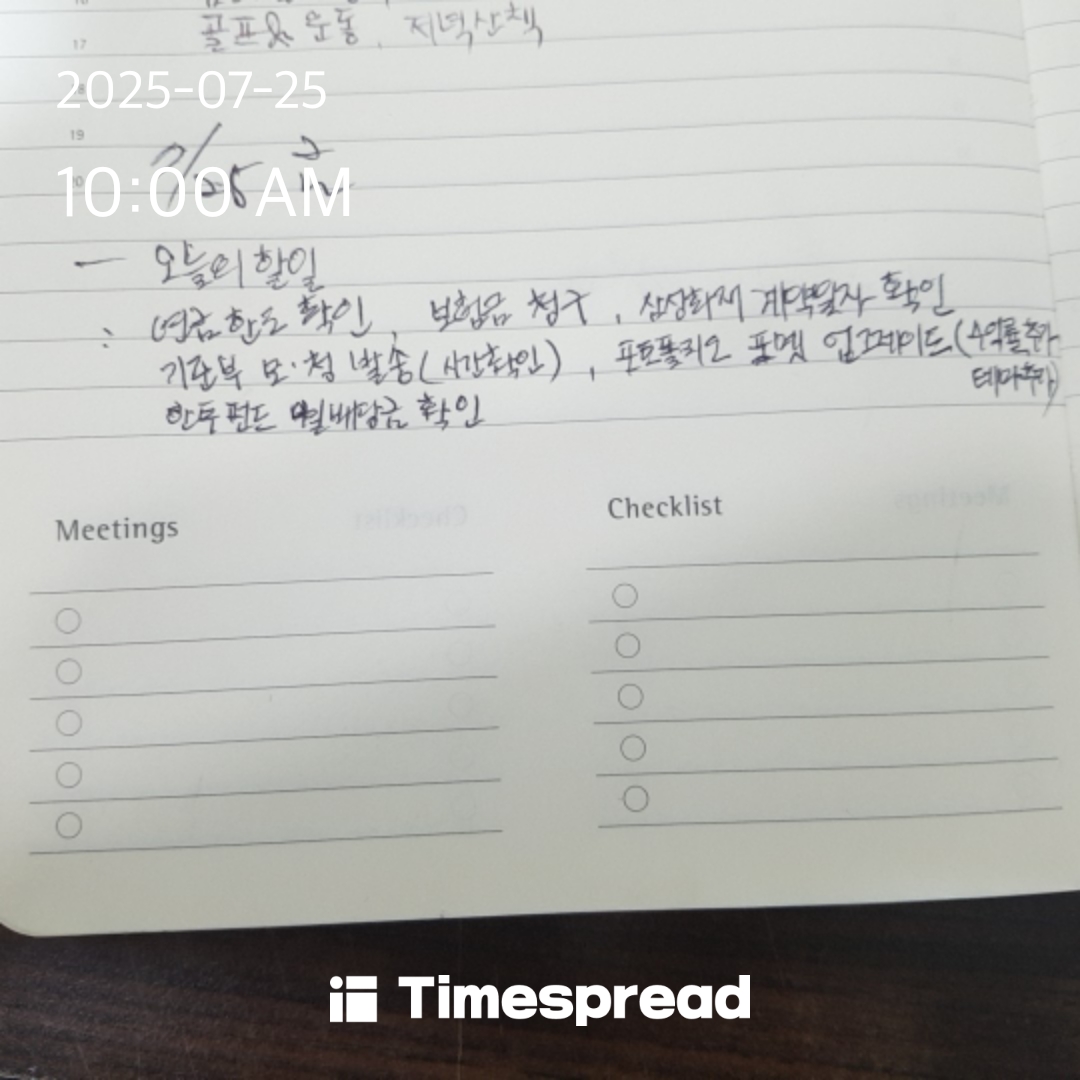 17 골프& 운동, 저녁산책
2025-07-25
19
7/25 금
10:00 AM
20
— 오늘의 할일
: 연금한도 확인, 보험금 청구, 삼성화재 계약일자 확인
기관부 모·청 발송(시간확인), 포트폴리오 포멧 업그레이드(수익률추가
테마추가)
한투펀드 월배당금 확인
Meetings
Checklist
Timespread